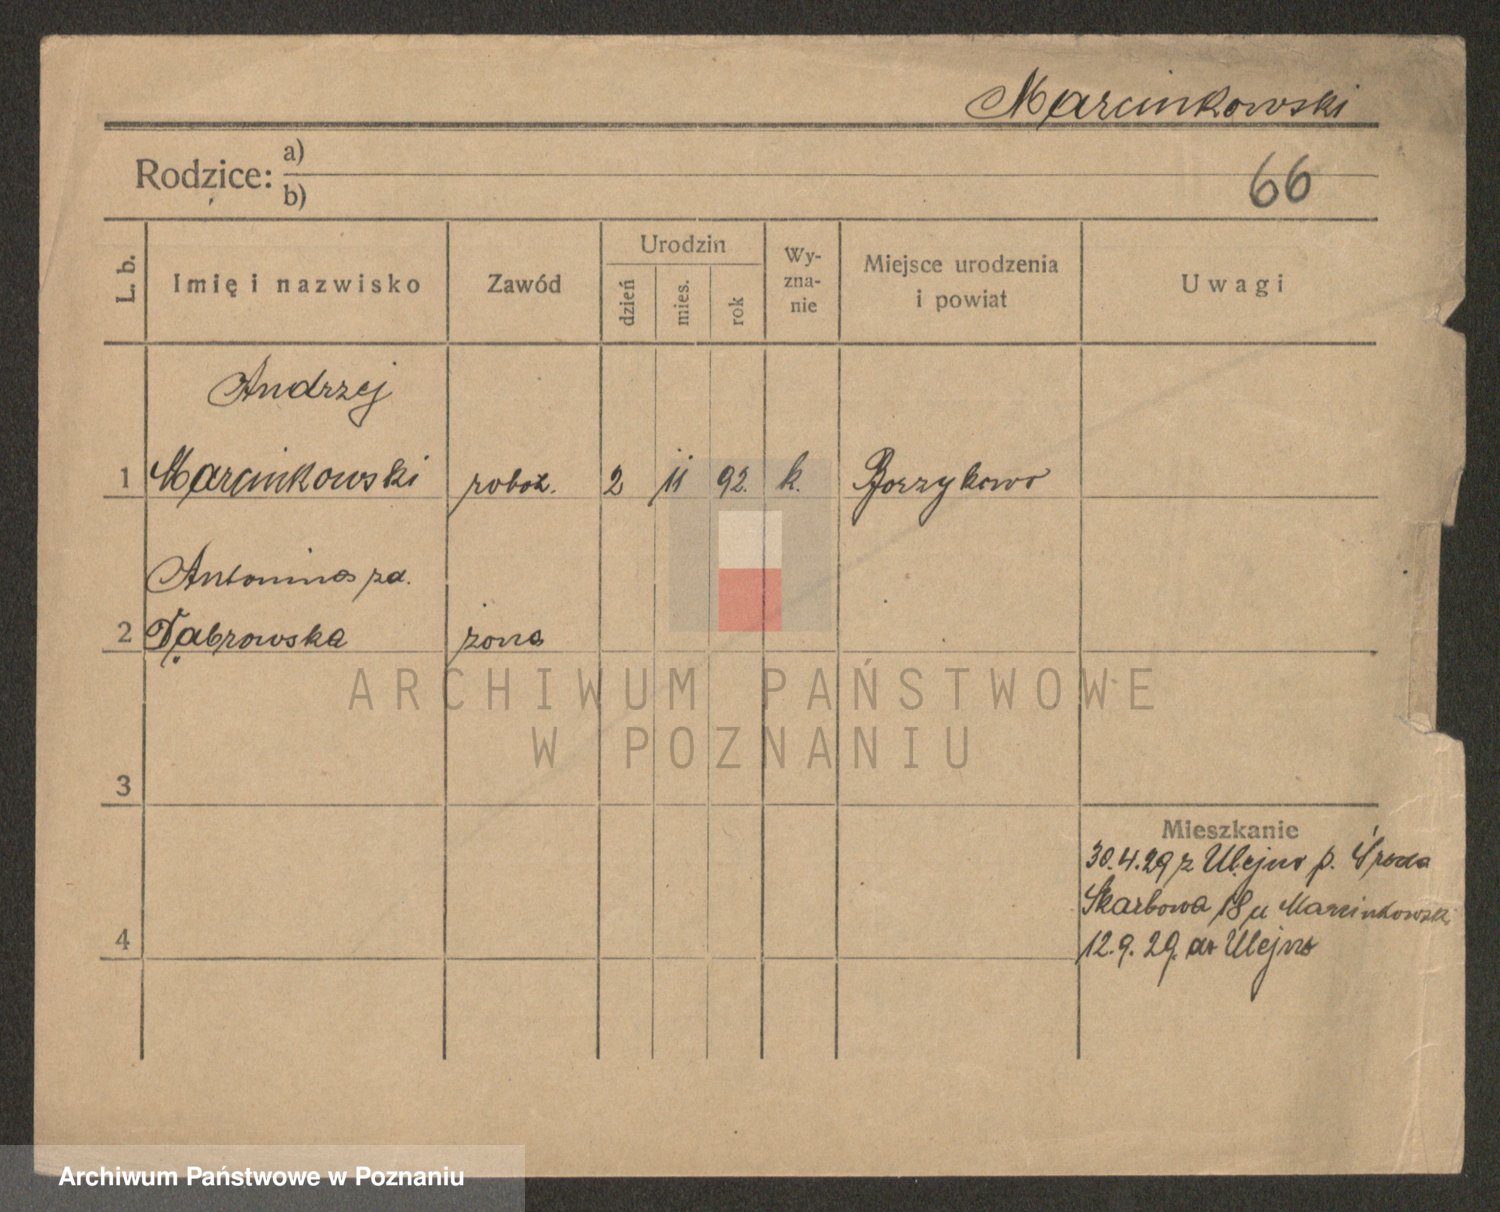 Marcinkowski
Rodzice: a)
b)
66
L. b.
Imię i nazwisko
Zawód
Urodzin
dzień
mies.
rok
Wy-
zna-
nie
Miejsce urodzenia
i powiat
Uwagi
Andrzej
1 Marcinkowski robot. 2 11 92. k. Borzykowo
Antonina zd.
2 Dąbrowska żona
ARCHIWUM PAŃSTWOWE
W POZNANIU
3
Mieszkanie
30.4.29 z Ulejno p. Środa
Skarbowa 18 u Marcinkowski
4
12.9.29. do Ulejno
Archiwum Państwowe w Poznaniu